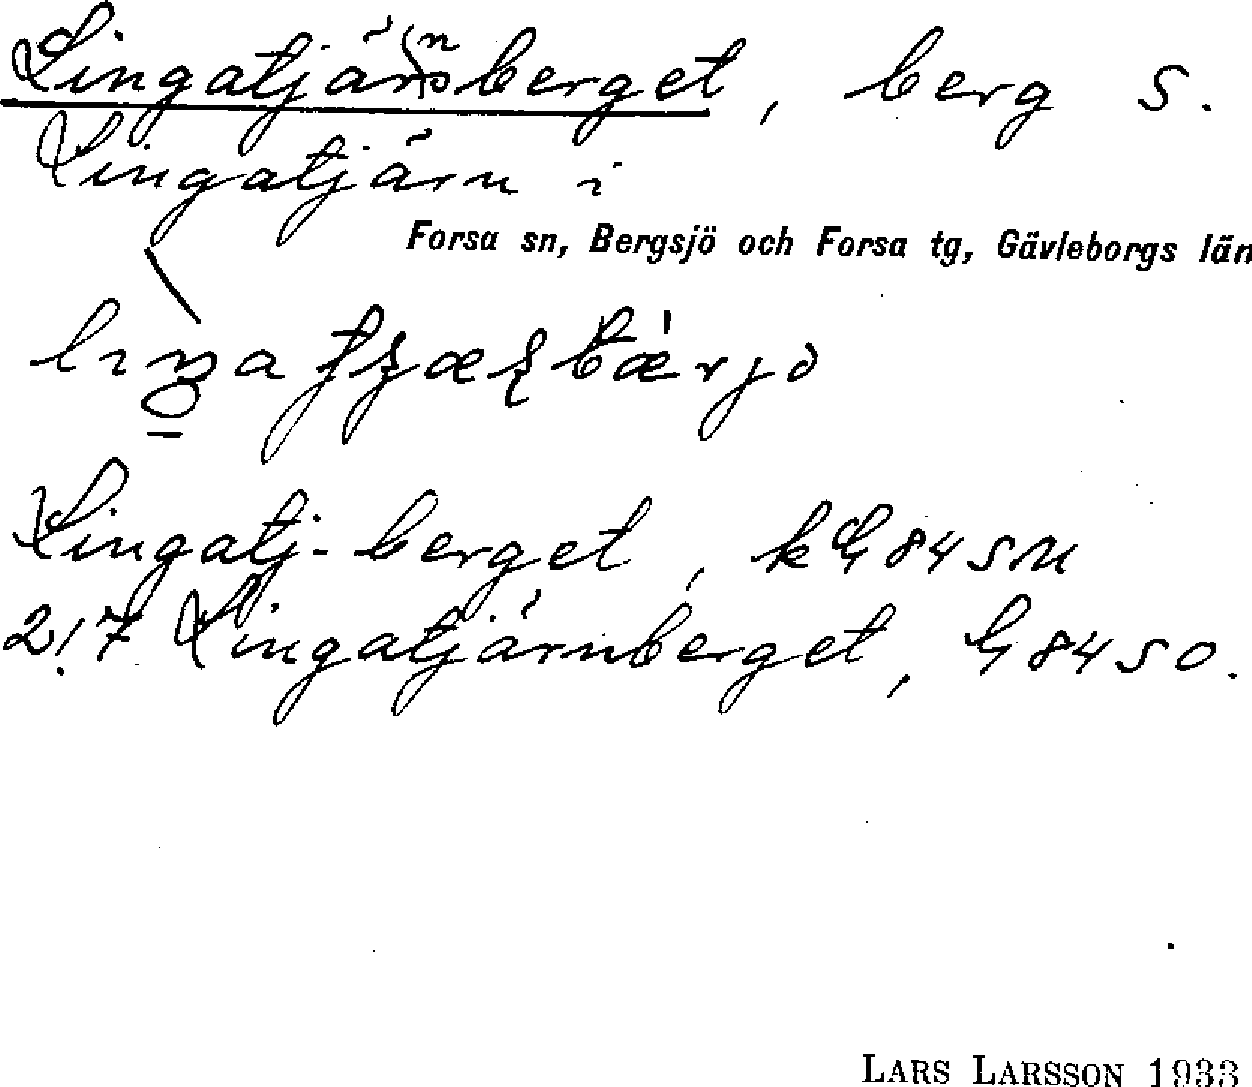 Lingatjärnsberget, berg S.
Lingatjärn i
Forsa sn, Bergsjö och Forsa tg, Gävleborgs län
Lingatj-berget, kG84SM
2!7 Lingatjärnberget, G84SO.
LARS LARSSON 1933